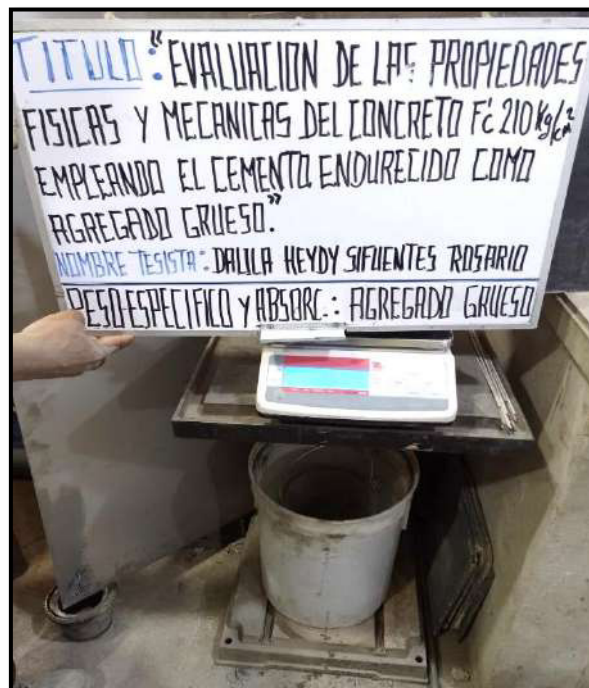 TITULO: "EVALUACION DE LAS PROPIEDADES
FISICAS Y MECANICAS DEL CONCRETO F'c 210 Kg/cm²
EMPLEANDO EL CEMENTO ENDURECIDO COMO
AGREGADO GRUESO."
NOMBRE TESISTA: DALILA HEYDY SIFUENTES ROSARIO
PESO ESPECIFICO y ABSORC.: AGREGADO GRUESO